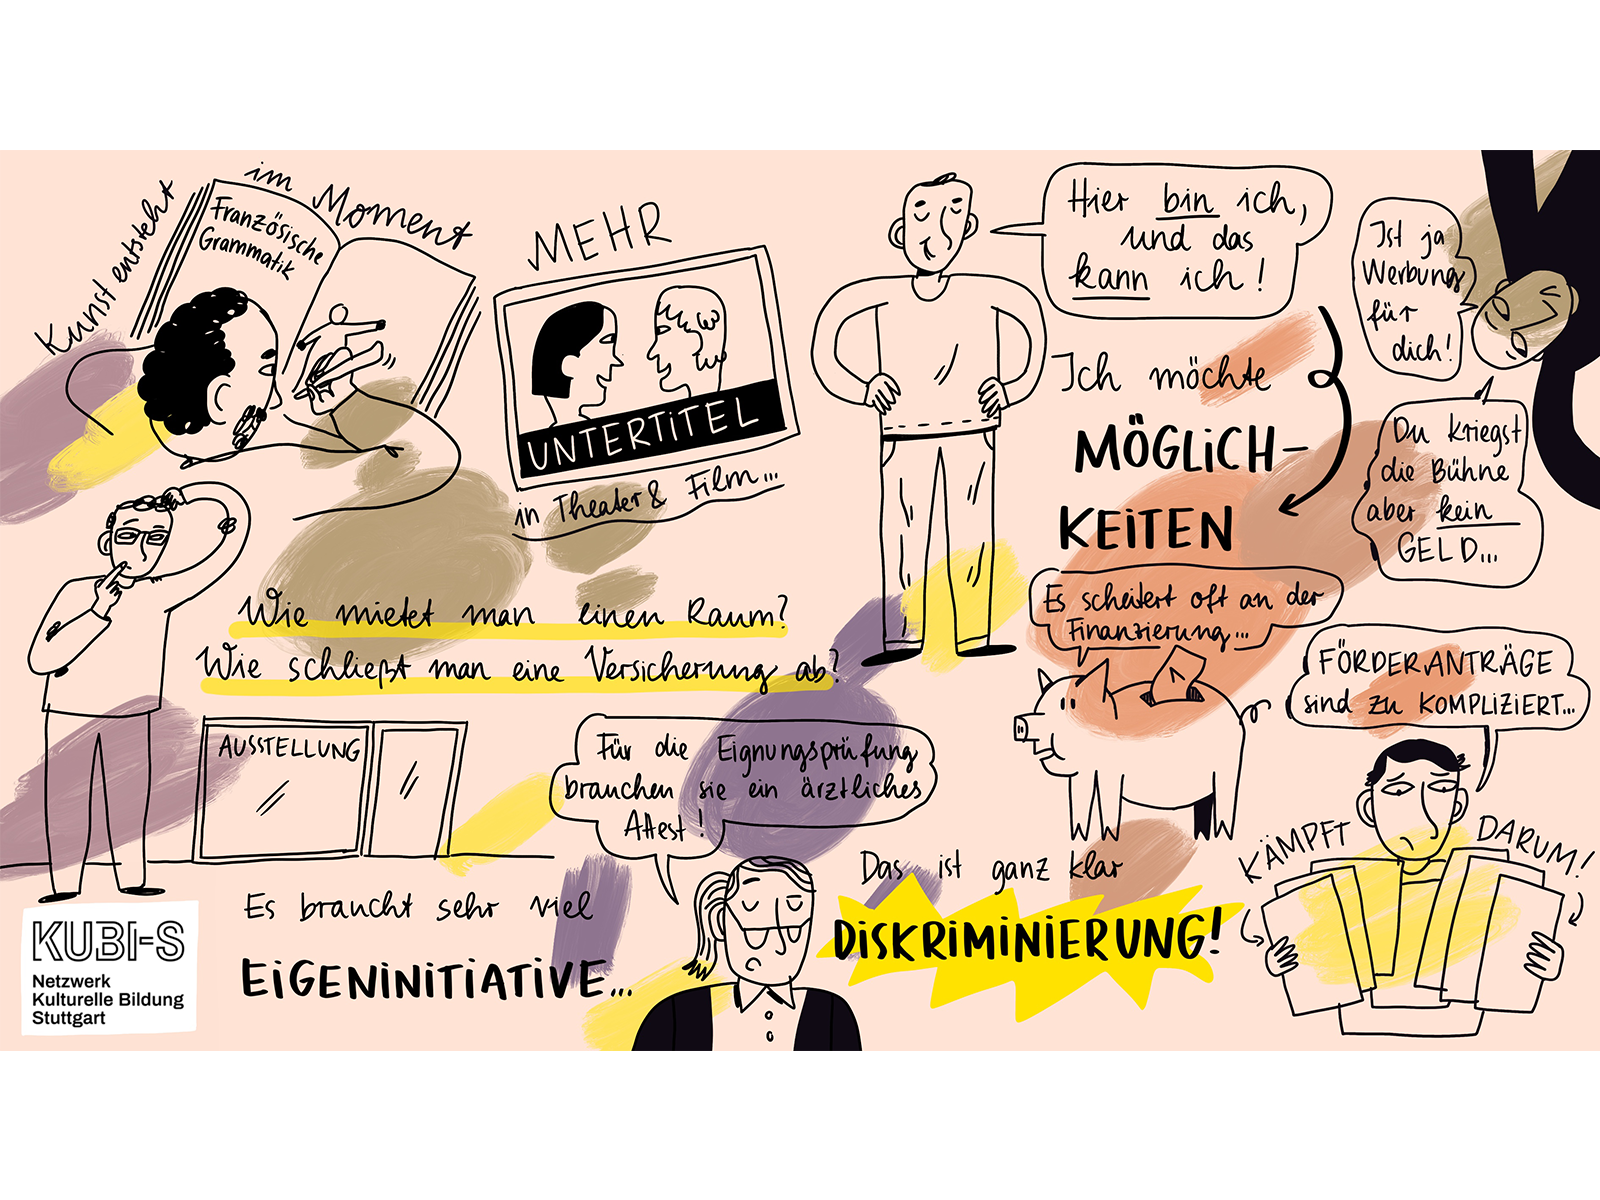 Kunst entsteht
im Moment
Französische
Grammatik
MEHR
UNTERTITEL
in Theater & Film...
Hier bin ich,
und das
kann ich!
Ich möchte
MÖGLICH-
KEITEN
Ist ja
Werbung
für
dich!
Du kriegst
die Bühne
aber kein
GELD...
Wie mietet man einen Raum?
Wie schließt man eine Versicherung ab?
AUSSTELLUNG
Es braucht sehr viel
EIGENINITIATIVE...
Für die Eignungsprüfung
brauchen sie ein ärztliches
Attest!
Das ist ganz klar
DISKRIMINIERUNG!
Es scheitert oft an der
Finanzierung...
FÖRDERANTRÄGE
sind zu KOMPLIZIERT...
KÄMPFT
DARUM!
KUBI-S
Netzwerk
Kulturelle Bildung
Stuttgart